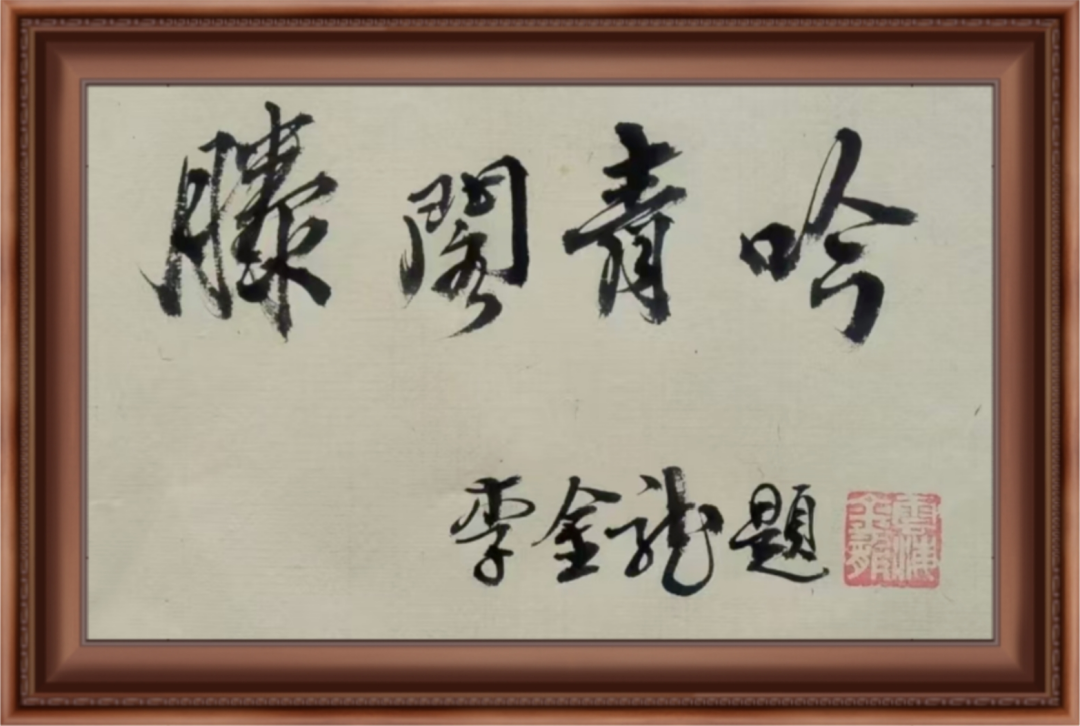 滕閣青吟
李金龍題